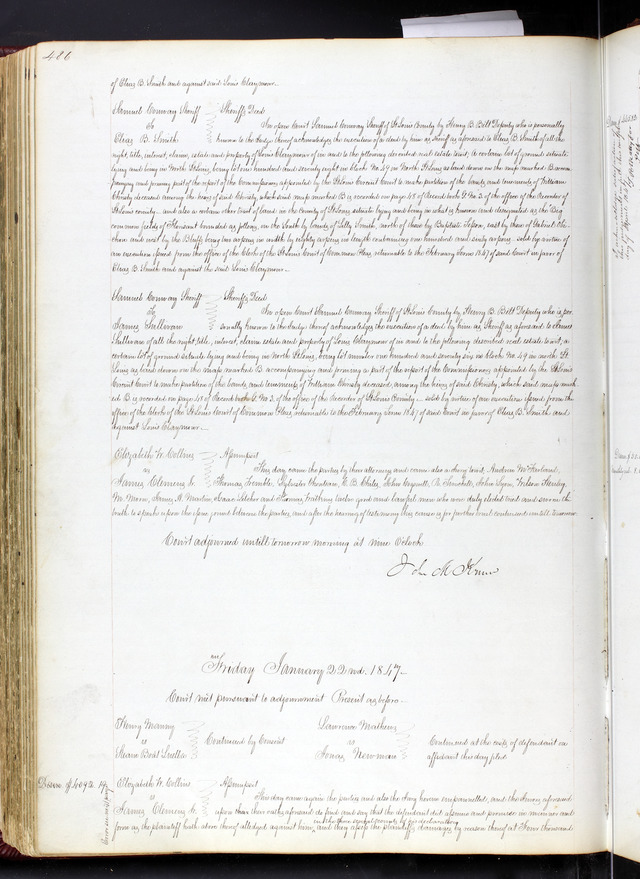 486
of Eleaz B. Smith and against said Louis Claymour.
Samuel Conway Sheriff Sheriffs Deed
to In open Court Samuel Conway Sheriff of St Louis County by Henry B. Belt Deputy who is personally
Eleaz B. Smith known to the Judge thereof acknowledges the execution of a deed by him as Sheriff as aforesaid to Eleaz B. Smith of all the
right, title, interest, claim, estate and property of Louis Claymour of in and to the following described real estate to wit: a certain lot of ground situate
lying and being in North St Louis, being lot one hundred and seventy eight in block No. 49 in North St Louis as laid down on the map marked B accom
panying and forming part of the report of the Commissioners appointed by the St Louis Circuit Court to make partition of the lands and tenements of William
Christy deceased among the heirs of said Christy, which said map marked B is recorded on page 48 of Record book No. 3 of the office of the Recorder of
St Louis county and also a certain other tract of land in the county of St Louis, situate lying and being in what is known and designated as the Big
common fields of Florissant bounded as follows, on the South by lands of Silly Smith, north of those by Baptiste east by those of Gabriel
and west by the Bluffs being two arpens in width by eighty arpens in length containing one hundred and sixty arpens sold by virtue of
an execution issued from the office of the Clerk of the St Louis Court of Common Pleas, returnable to the February Term 1847 of said Court in favor of
Eleaz B. Smith and against the said Louis Claymour.
Samuel Conway Sheriff Sheriffs Deed
to In open Court Samuel Conway Sheriff of St Louis County by Henry B. Belt Deputy who is per
James Sullivan sonally known to the Judge thereof acknowledges the execution of a deed by him as Sheriff as aforesaid to James
Sullivan of all the right title, interest, claim estate and property of Louis Claymour of in and to the following described real estate to wit, a
certain lot of ground situate lying and being in North St Louis, being lot number one hundred and seventy six in block No. 49 in North St
Louis as laid down on the map marked B accompanying and forming a part of the report of the Commissioners appointed by the St Louis
Circuit Court to make partition of the lands and tenements of William Christy deceased, among the heirs of said Christy, which said map mark
ed B is recorded on page 48 of Record book No. 3. of the office of the Recorder of St Louis County sold by virtue of an execution issued from the
office of the Clerk of the St Louis Court of Common Pleas, returnable to the February Term 1847 of said Court in favor of Eleaz B. Smith and
against Louis Claymour.
Elizabeth W. Collins Assumpsit
vs This day came the parties by their attorneys and came also a Jury to wit, Andrew McFarland,
James Clemens Jr Thomas Sylvester Christian, John Lyon, Wilson
Wm. Moore, James A. Martin, Isaac and Thomas twelve good and lawful men who were duly elected tried and sworn the
truth to speak upon the issue joined between the parties, and after the hearing of testimony this cause is for further trial continued untill tomorrow.
Court adjourned untill tomorrow morning at nine Oclock
John M. Krum
Friday January 22nd. 1847
Court met pursuant to adjournment Present as before
Henry Manny Lawrence Mathews
vs Continued by Consent vs Continued at the costs of defendant on
Steam Boat Luella Jonas Newman affidavit this day filed
Elizabeth W. Collins Assumpsit
vs This day came again the parties and also the Jury herein impannelled, and the Jurors aforesaid
James Clemens Jr upon their oaths aforesaid do find and say that the defendant did assume and promise in manner and
in the three several counts of her declaration
form as the plaintiff hath above thereof alledged against him, and they assess the plaintiffs damages by reason thereof at Four thousand